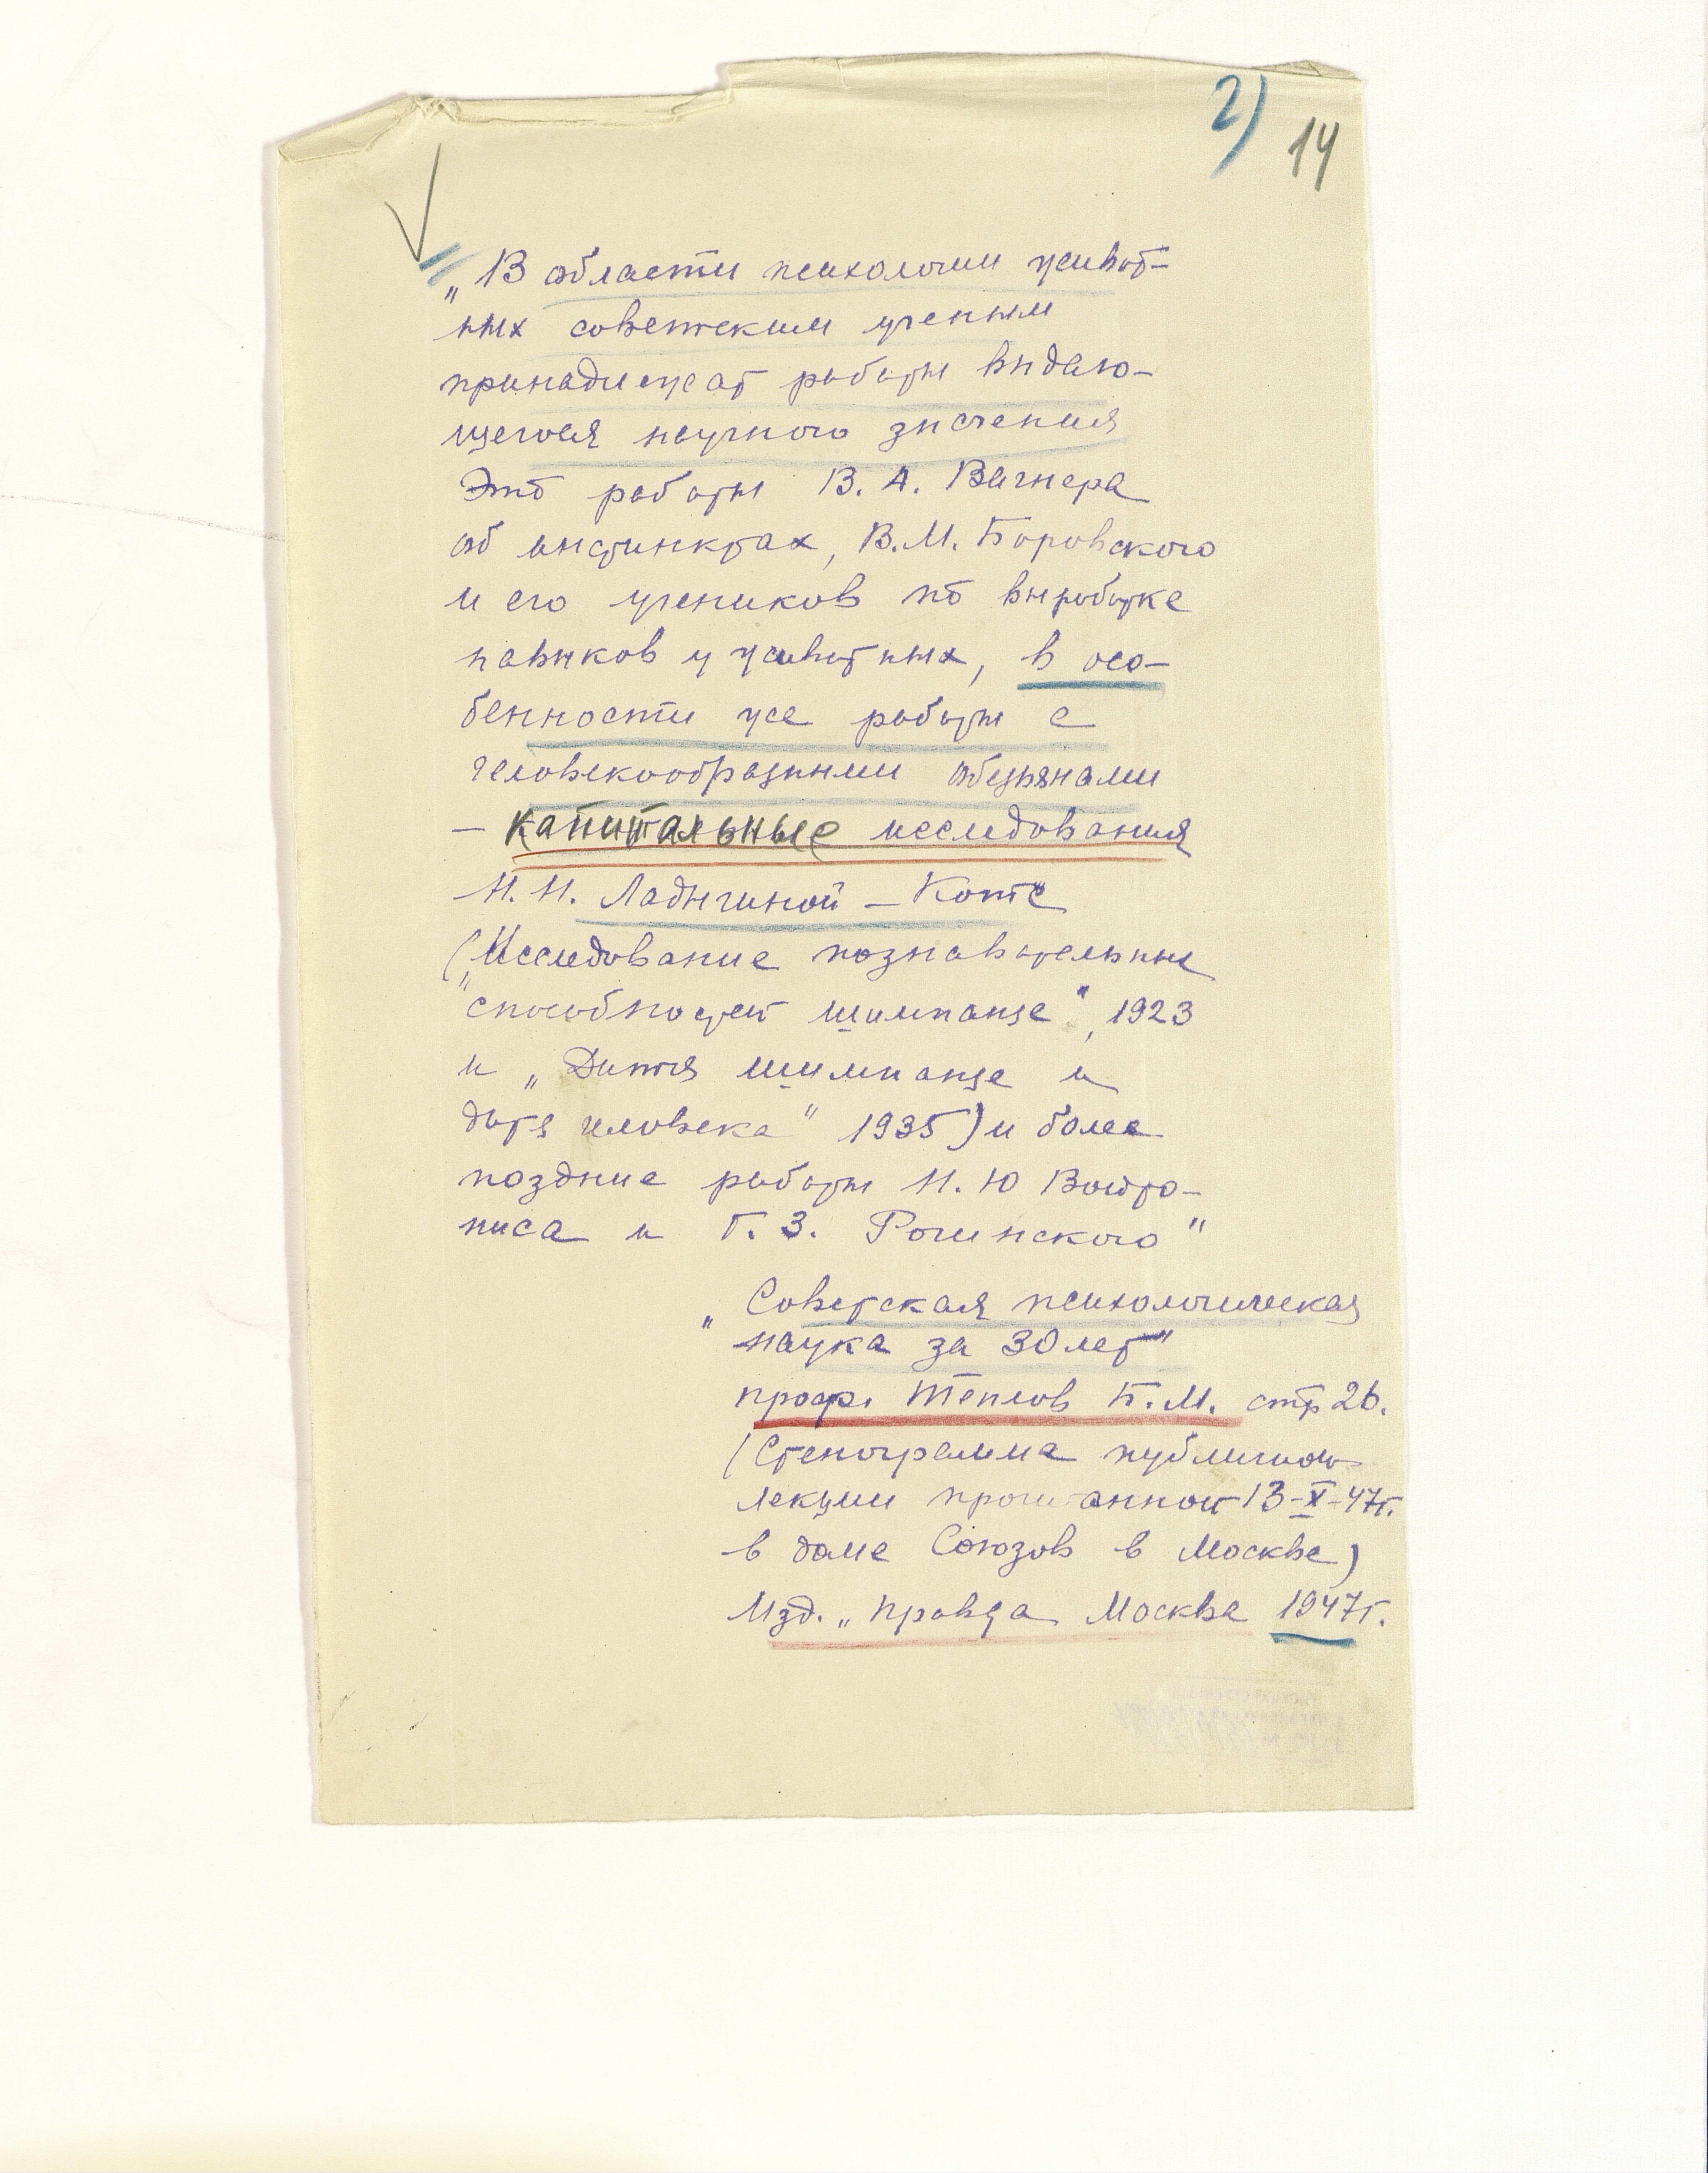 2)
14
„В области психологии живот-
ных советским ученым
принадлежат работы выдаю-
щегося научного значения
Это работы В. А. Вагнера
об инстинктах, В.М. Боровского
и его учеников по выработке
навыков у животных, в осо-
бенности же работы с
человекообразными обезьянами
— капитальные исследования
Н. Н. Ладыгиной – Котс
(„Исследование познавательных
способностей шимпанзе", 1923
и „Дитя шимпанзе и
дитя человека" 1935) и более
поздние работы Н. Ю Войто-
ниса и Г. З. Рогинского"
„Советская психологическая
наука за 30 лет"
проф. Теплов Б. М. стр 26.
(Стенограмма публичной
лекции прочитанной 13-X-47г.
в доме Союзов в Москве)
Изд. „Правда Москва 1947г.